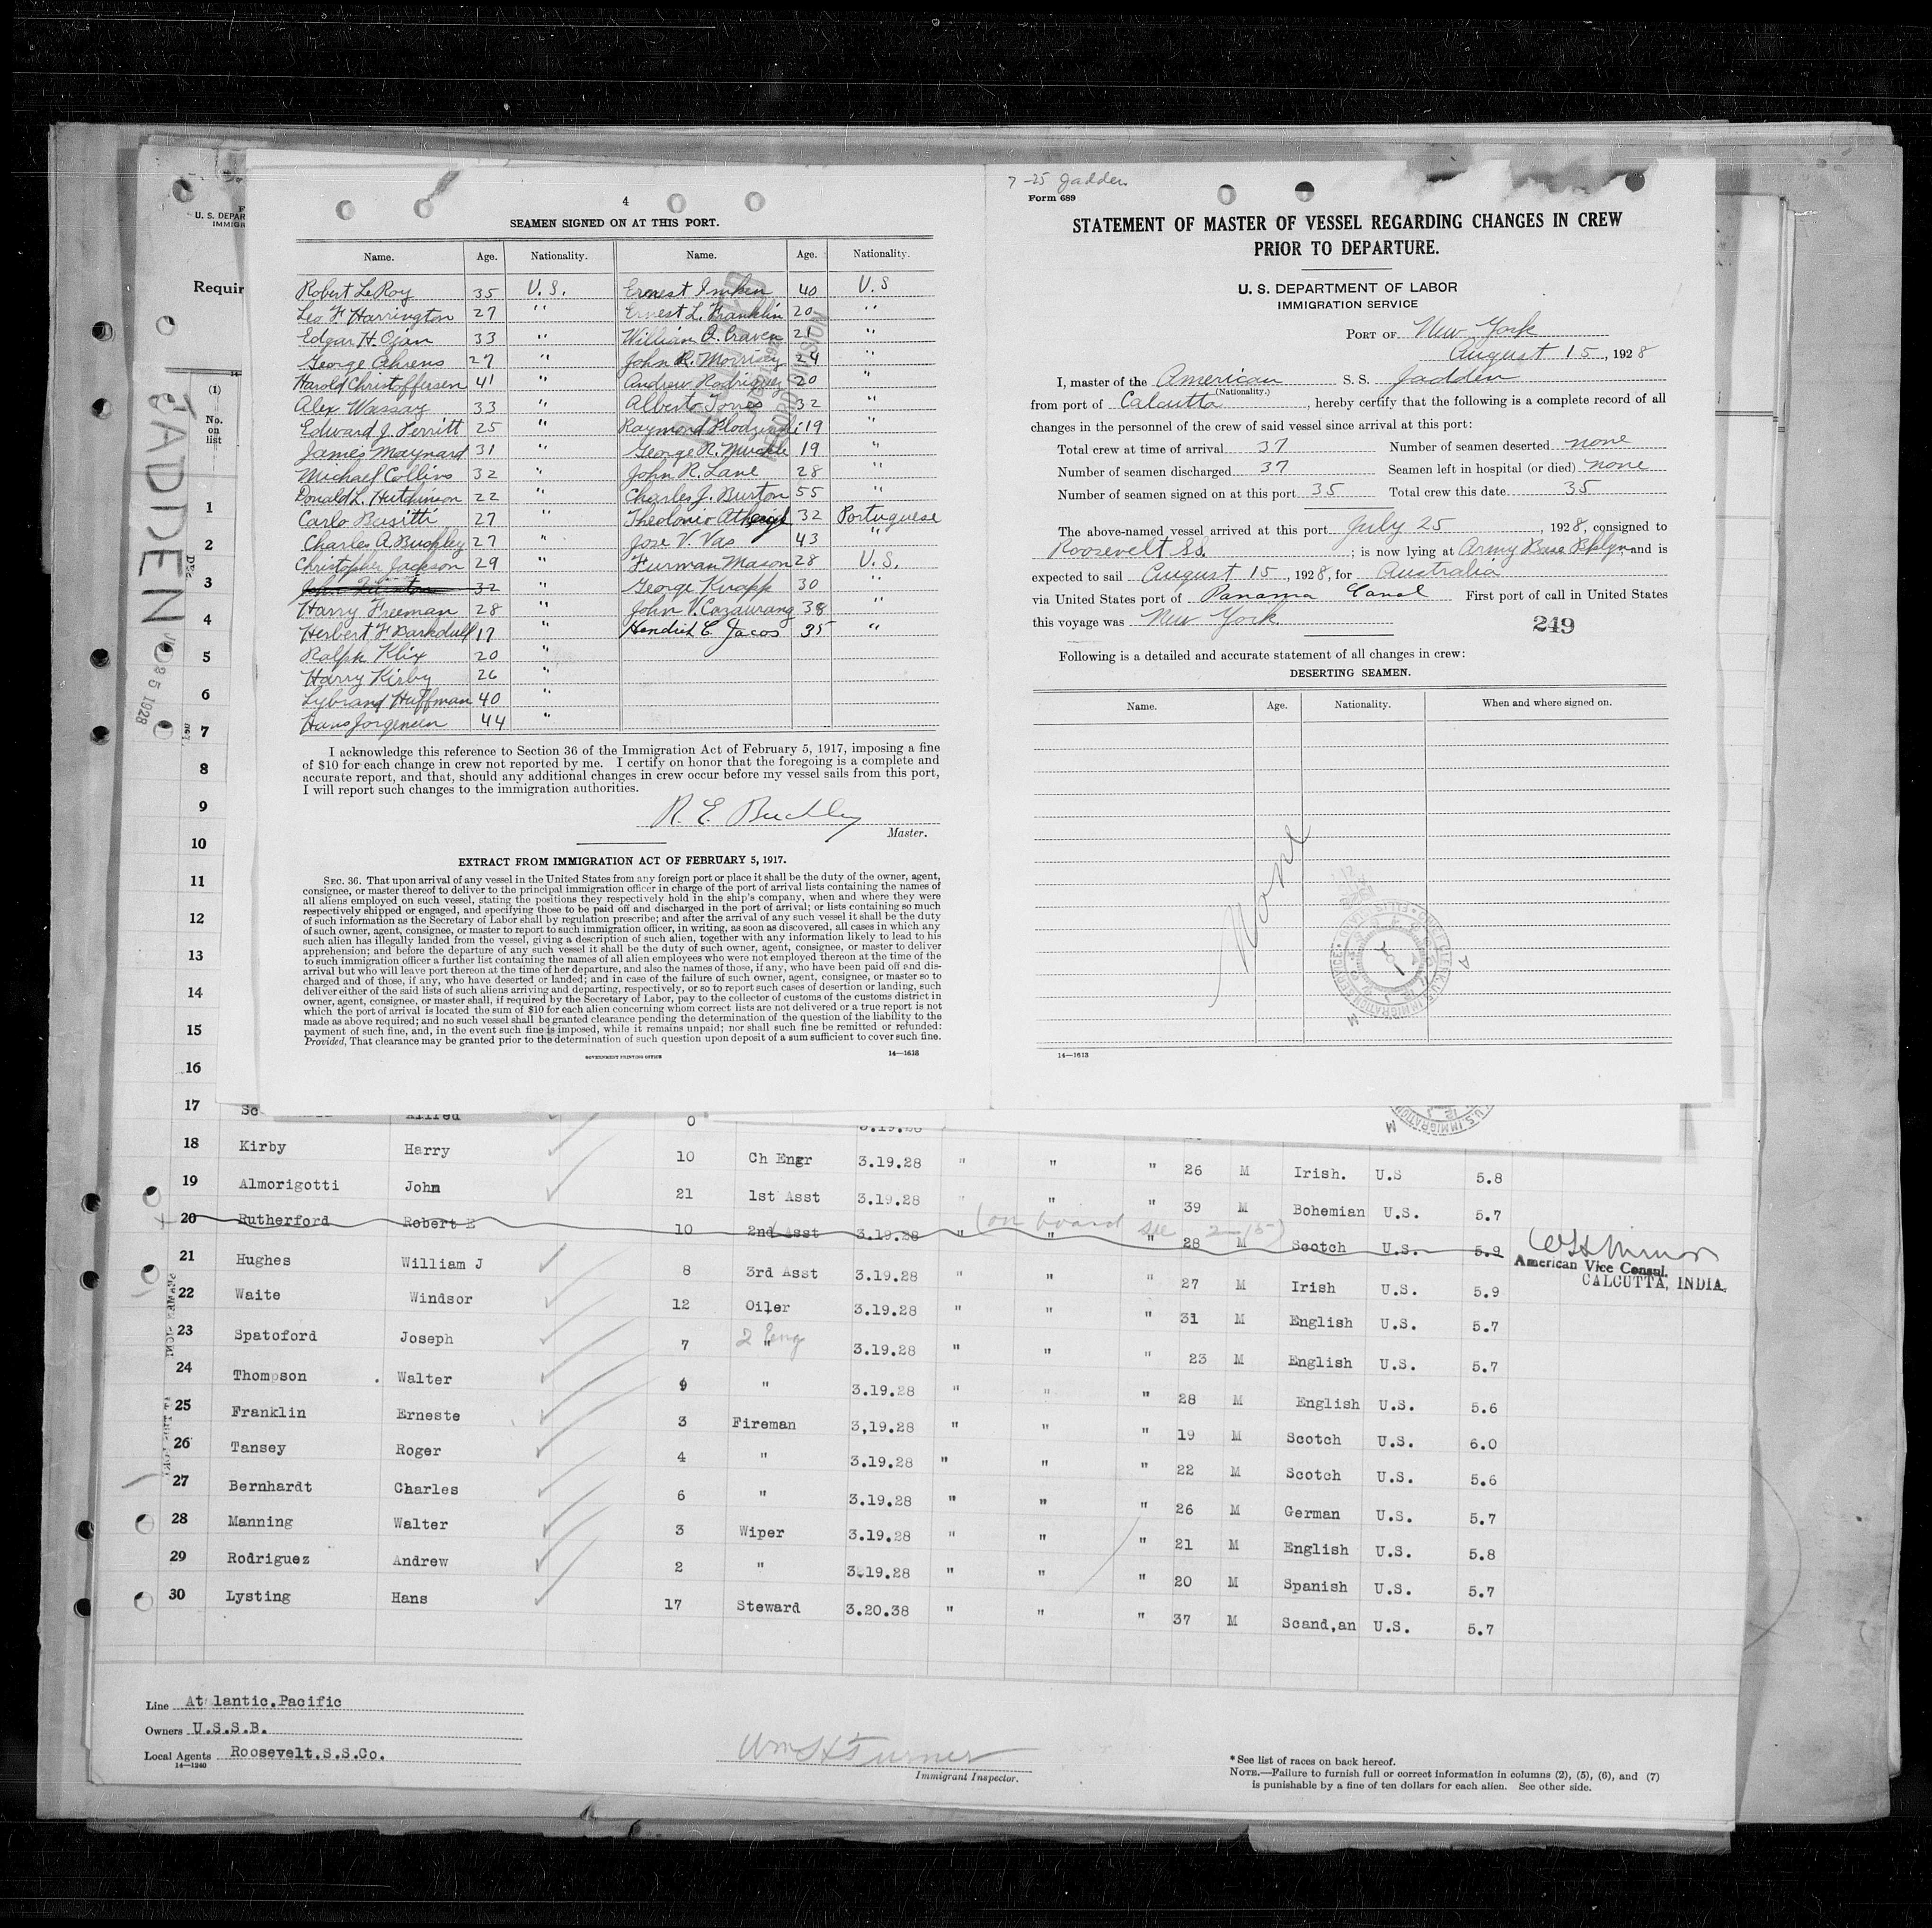 4
SEAMEN SIGNED ON AT THIS PORT.
Name. Age. Nationality. Name. Age. Nationality.
Robert LeRoy 35 U.S. Ernest Imken 40 U.S
Leo F Harrington 27 " Ernest L. Franklin 20 "
Edgar H. Ojan 33 " William A. Craven 21 "
George Ahrens 27 " John R. Morrisey 24 "
Harold Christoffersen 41 " Andrew Rodriguez 20 "
Alex Wassay 33 " Alberto Torres 32 "
Edward J. Ferritt 25 " Raymond 19 "
James Maynard 31 " George R. Muckle 19 "
Michael Collins 32 " John R. Lane 28 "
Donald L. Hutchinson 22 " Charles J. Burton 55 "
Carlo Basitti 27 " Theolonio 32 Portuguese
Charles A Buckley 27 " Jose V. Vas 43 "
Christopher Jackson 29 " Furman Mason 28 U.S.
John 32 George Knapp 30 "
Harry Freeman 28 " John V. Cazaurang 38 "
Herbert F Barkdull 17 " Hendrick C. Jacos 35 "
Ralph Klix 20 "
Harry Kirby 26 "
Lybrand Huffman 40 "
Hans Jorgensen 44 "
I acknowledge this reference to Section 36 of the Immigration Act of February 5, 1917, imposing a fine
of $10 for each change in crew not reported by me. I certify on honor that the foregoing is a complete and
accurate report, and that, should any additional changes in crew occur before my vessel sails from this port,
I will report such changes to the immigration authorities.
R. E. Buckley
Master.
EXTRACT FROM IMMIGRATION ACT OF FEBRUARY 5, 1917.
SEC. 36. That upon arrival of any vessel in the United States from any foreign port or place it shall be the duty of the owner, agent,
consignee, or master thereof to deliver to the principal immigration officer in charge of the port of arrival lists containing the names of
all aliens employed on such vessel, stating the positions they respectively hold in the ship's company, when and where they were
respectively shipped or engaged, and specifying those to be paid off and discharged in the port of arrival; or lists containing so much
of such information as the Secretary of Labor shall by regulation prescribe; and after the arrival of any such vessel it shall be the duty
of such owner, agent, consignee, or master to report to such immigration officer, in writing, as soon as discovered, all cases in which any
such alien has illegally landed from the vessel, giving a description of such alien, together with any information likely to lead to his
apprehension; and before the departure of any such vessel it shall be the duty of such owner, agent, consignee, or master to deliver
to such immigration officer a further list containing the names of all alien employees who were not employed thereon at the time of the
arrival but who will leave port thereon at the time of her departure, and also the names of those, if any, who have been paid off and dis-
charged and of those, if any, who have deserted or landed; and in case of the failure of such owner, agent, consignee, or master so to
deliver either of the said lists of such aliens arriving and departing, respectively, or so to report such cases of desertion or landing, such
owner, agent, consignee, or master shall, if required by the Secretary of Labor, pay to the collector of customs of the customs district in
which the port of arrival is located the sum of $10 for each alien concerning whom correct lists are not delivered or a true report is not
made as above required; and no such vessel shall be granted clearance pending the determination of the question of the liability to the
payment of such fine, and, in the event such fine is imposed, while it remains unpaid; nor shall such fine be remitted or refunded:
Provided, That clearance may be granted prior to the determination of such question upon deposit of a sum sufficient to cover such fine.
GOVERNMENT PRINTING OFFICE 14—1613
7-25 Jadden
Form 689
STATEMENT OF MASTER OF VESSEL REGARDING CHANGES IN CREW
PRIOR TO DEPARTURE.
U. S. DEPARTMENT OF LABOR
IMMIGRATION SERVICE
PORT OF New York
August 15, 1928
I, master of the American S. S. Jadden
(Nationality.)
from port of Calcutta, hereby certify that the following is a complete record of all
changes in the personnel of the crew of said vessel since arrival at this port:
Total crew at time of arrival 37 Number of seamen deserted none
Number of seamen discharged 37 Seamen left in hospital (or died) none
Number of seamen signed on at this port 35 Total crew this date 35
The above-named vessel arrived at this port July 25, 1928, consigned to
Roosevelt Ss.; is now lying at Army Base Bklyn and is
expected to sail August 15, 1928, for Australia
via United States port of Panama Canal First port of call in United States
this voyage was New York.
249
Following is a detailed and accurate statement of all changes in crew:
DESERTING SEAMEN.
Name. Age. Nationality. When and where signed on.
None
14—1613
U. S. DEPAR
IMMIGR
Requir
(1)
No.
on
list
JADDEN
JUL 25 1928
1
2
3
4
5
6
7
8
9
10
11
12
13
14
15
16
17 Alfred
18 Kirby Harry 10 Ch Engr 3.19.28 " " " 26 M Irish. U.S 5.8
19 Almorigotti John 21 1st Asst 3.19.28 " " " 39 M Bohemian U.S. 5.7
20 Rutherford Robert E 10 2nd Asst 3.19.28 " " " 28 M Scotch U.S. 5.9
(on board see 2-15)
21 Hughes William J 8 3rd Asst 3.19.28 " " " 27 M Irish U.S. 5.9
American Vice Consul.
CALCUTTA, INDIA.
22 Waite Windsor 12 Oiler 3.19.28 " " " 31 M English U.S. 5.7
23 Spatoford Joseph 7 " 2 Eng 3.19.28 " " " 23 M English U.S. 5.7
24 Thompson Walter " 3.19.28 " " " 28 M English U.S. 5.6
25 Franklin Erneste 3 Fireman 3,19.28 " " " 19 M Scotch U.S. 6.0
26 Tansey Roger 4 " 3.19.28 " " " 22 M Scotch U.S. 5.6
27 Bernhardt Charles 6 " 3.19.28 " " " 26 M German U.S. 5.7
28 Manning Walter 3 Wiper 3.19.28 " " " 21 M English U.S. 5.8
29 Rodriguez Andrew 2 " 3.19.28 " " " 20 M Spanish U.S. 5.7
30 Lysting Hans 17 Steward 3.20.38 " " " 37 M Scand,an U.S. 5.7
Line Atlantic.Pacific
Owners U.S.S.B.
Local Agents Roosevelt.S.S.Co.
14—1240
Wm H Turner
Immigrant Inspector.
*See list of races on back hereof.
NOTE.—Failure to furnish full or correct information in columns (2), (5), (6), and (7)
is punishable by a fine of ten dollars for each alien. See other side.